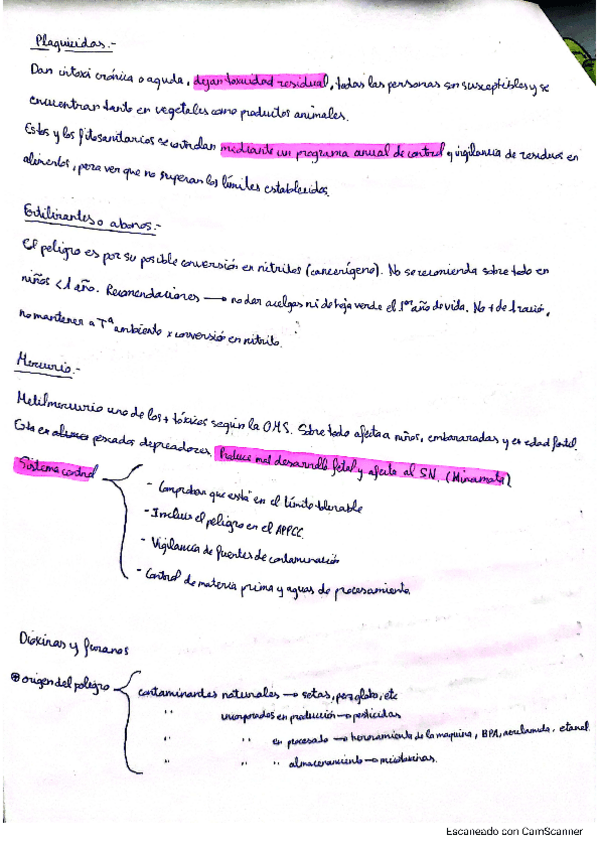 Plaguicidas.-
Dan intoxi crónica o aguda, dejan toxicidad residual, todas las personas son susceptibles y se
encuentran tanto en vegetales como productos animales.
Estos y los fitosanitarios se controlan mediante un programa anual de control y vigilancia de residuos en
alimentos, para ver que no superan los límites establecidos.
Fertilizantes o abonos.-
El peligro es por su posible conversión en nitritos (cancerígeno). No se recomienda sobre todo en
niños <1 año. Recomendaciones → no dar acelgas ni de hoja verde el 1er año de vida. No + de 1 ració,
no mantener a Tª ambiento x conversión en nitrito.
Mercurio.-
Metilmercurio uno de los + tóxicos según la OMS. Sobre todo afecta a niños, embarazadas y en edad fértil.
Esta en pescados depredadores. Produce mal desarrollo fetal y afecta al SN. (Minamata)
Sistema control
- Comprobar que está en el límite tolerable
- Incluir el peligro en el APPCC
- Vigilancia de fuentes de contaminación
- Control de materia prima y aguas de procesamiento
Dioxinas y furanos
origen del peligro
contaminantes naturales → setas, pez globo, etc
" incorporados en producción → pesticidas
" " en procesado → herramienta de la maquina, BPA, acrilamida, etanol.
" " " almacenamiento → micotoxinas.
Escaneado con CamScanner